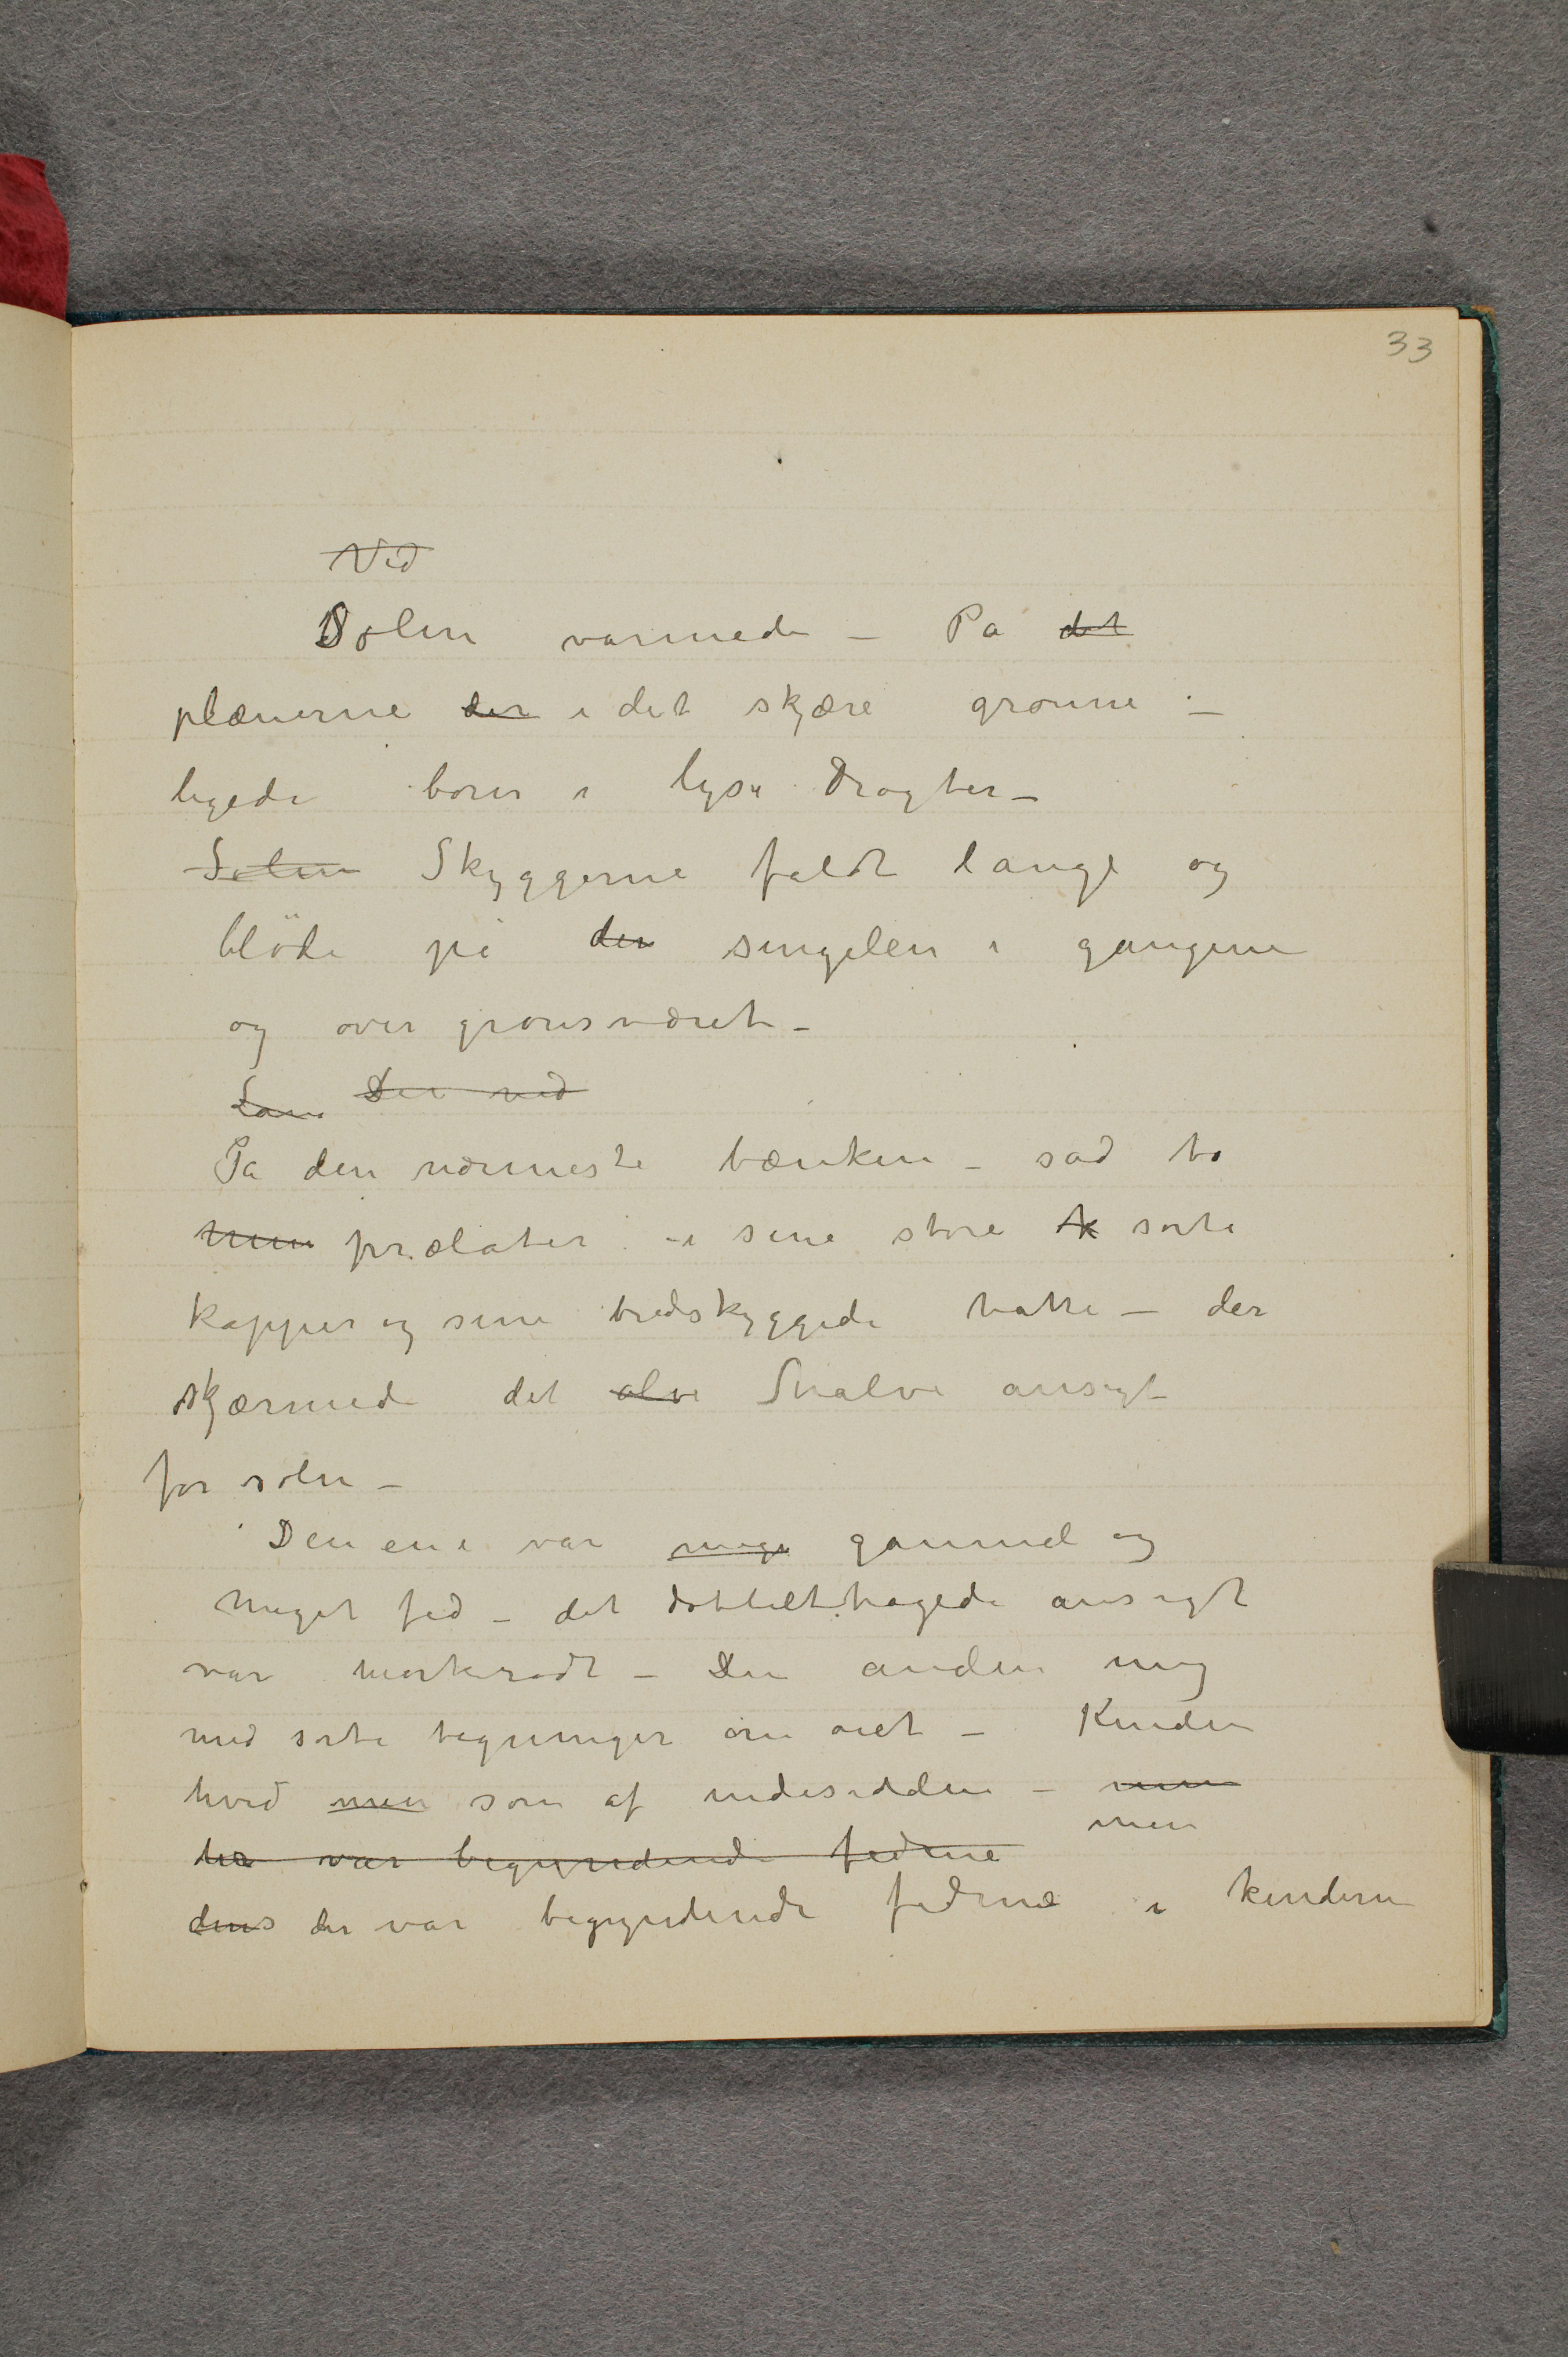 33
Ved
Solen varmede – På det
plænerne der i det skjære grønne –
legede børn i lyse Dragter –
Solen Skyggerne faldt lange og
blöde på den singelen i gangene
og over grønsværet –
Lan Der ved
På den nærmeste bænken – sad to
men prælater i sine store k sorte
kapper og sine bredskyggede hatte – der
skjærmede det alve halve ansigt
for solen –
Den ene var mege gammel og
meget fed – det dobbelthagede ansigt
var mørkerødt – Den anden ung
med sorte tegninger om øiet – Kinden
hvid men som af indesidden – men
her var begyndende fedme men
dens der var begyndende fedme i kinderne